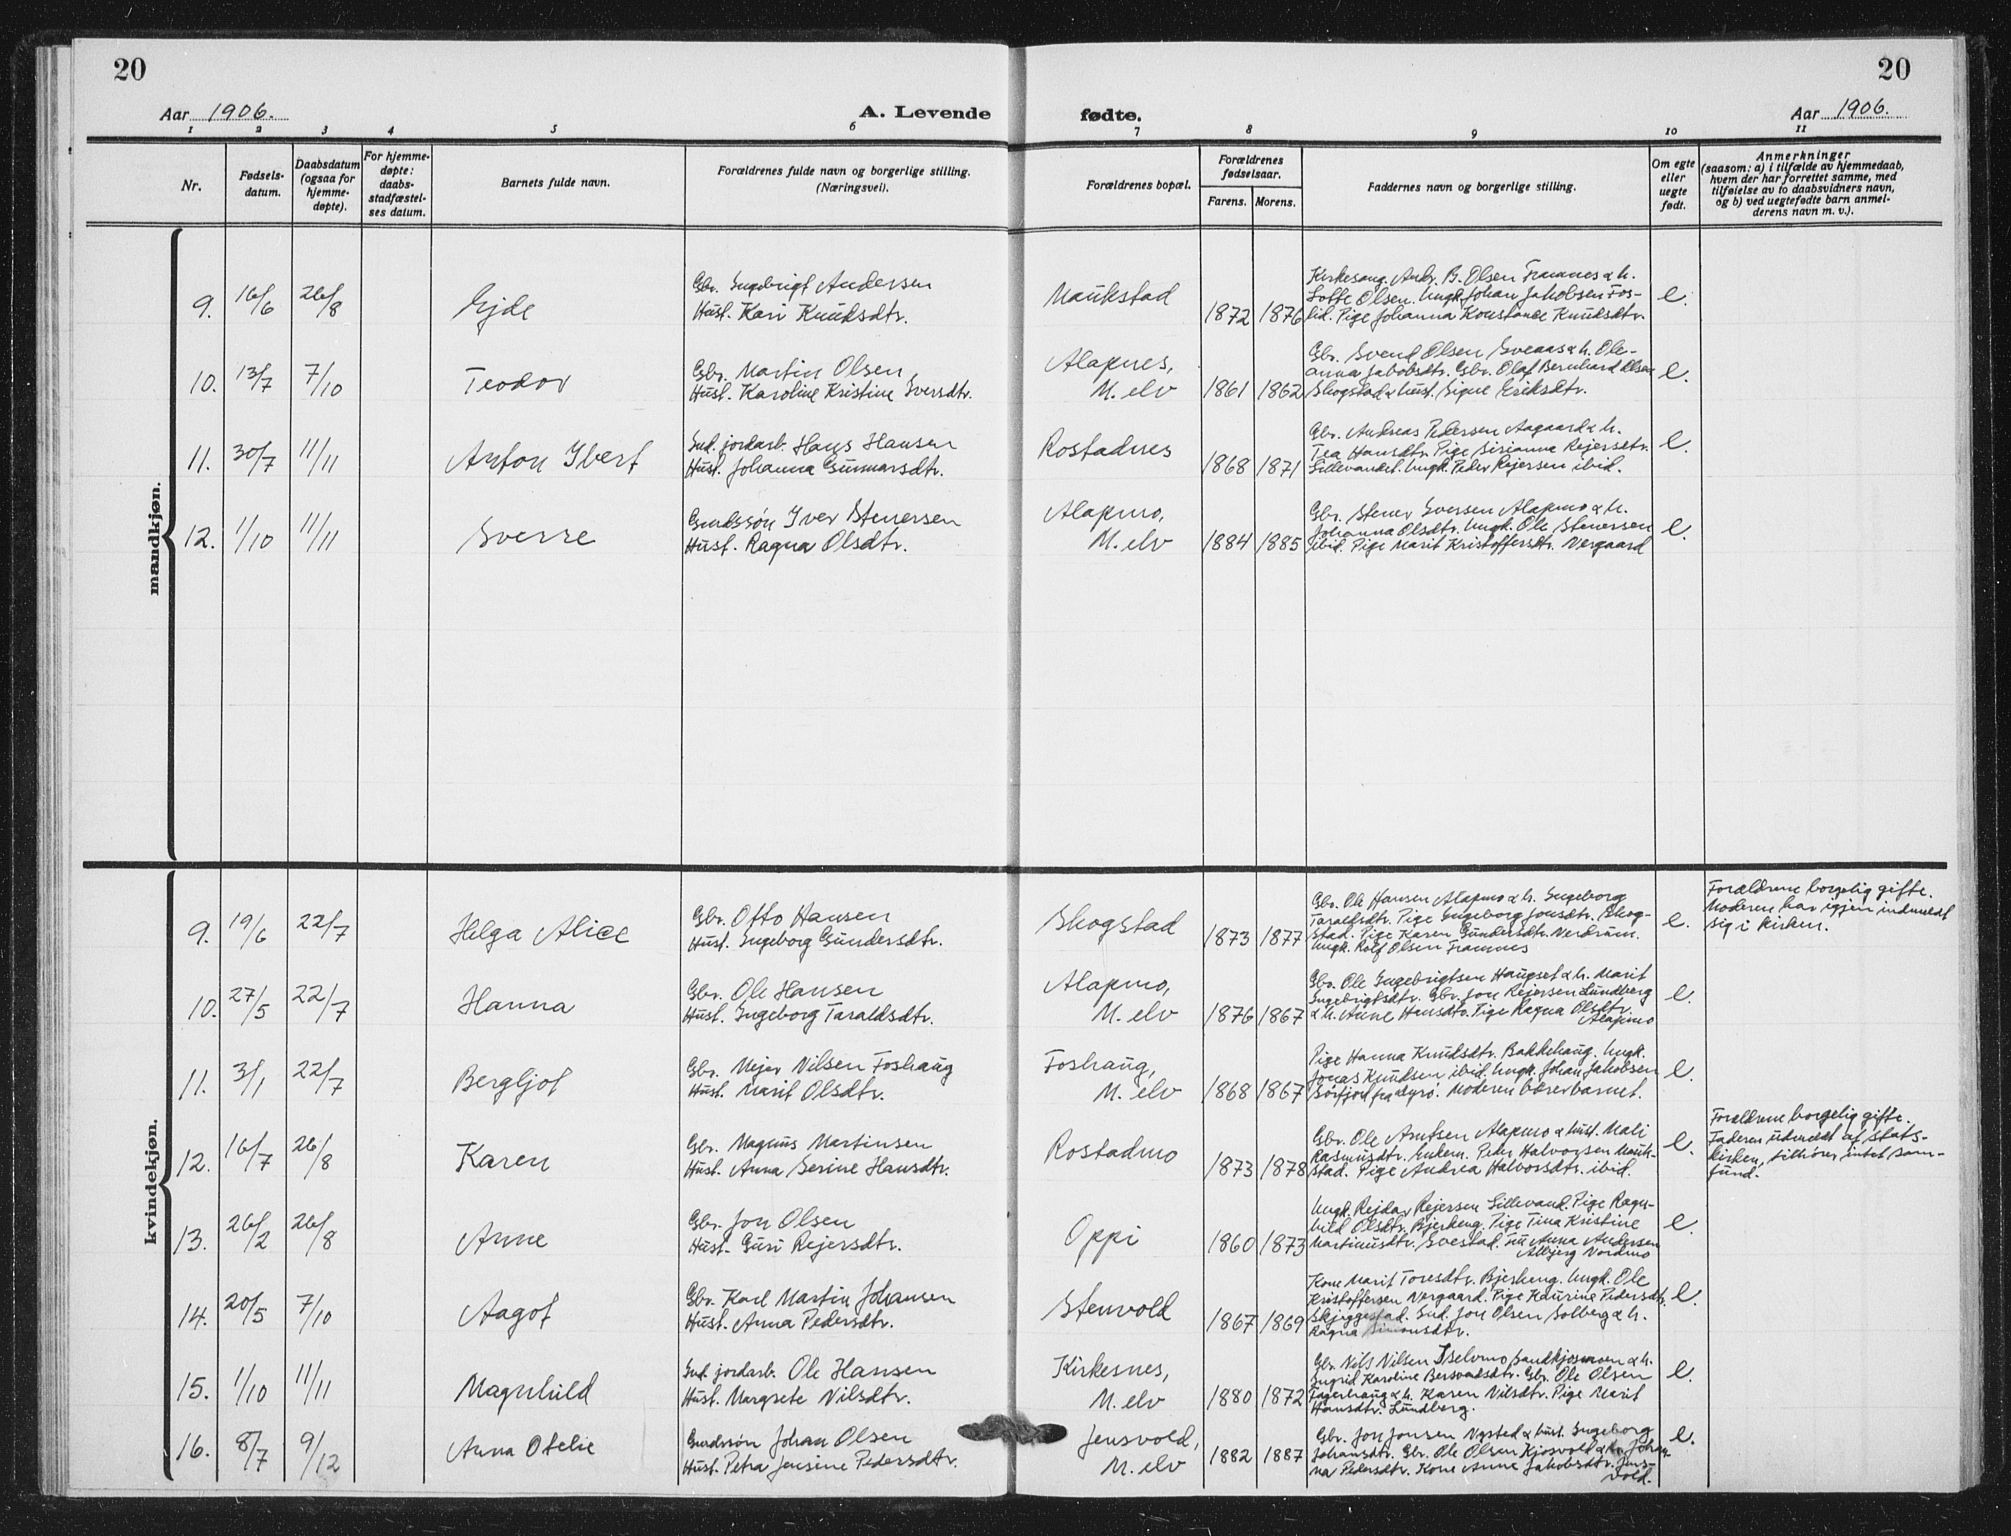 20
20
Aar 1906.
A. Levende fødte.
Aar 1906.
1 2 3 4 5 6 7 8 9 10 11
Nr.
Fødsels-
datum.
Daabsdatum
(ogsaa for
hjemme-
døpte).
For hjemme-
døpte:
daabs-
stadfæstel-
ses datum.
Barnets fulde navn.
Forældrenes fulde navn og borgerlige stilling.
(Næringsvei).
Forældrenes bopæl.
Forældrenes
fødselsaar.
Farens. Morens.
Faddernes navn og borgerlige stilling.
Om egte
eller
uegte
født.
Anmerkninger
(saasom: a) i tilfælde av hjemmedaab,
hvem der har forrettet samme, med
tilføielse av to daabsvidners navn,
og b) ved uegtefødte barn anmel-
derens navn m. v.).
mandkjøn.
9. 16/6 26/8 Ejde
Gbr. Ingebrigt Andersen
Hust. Kari Knudsdtr.
Maukstad
1872 1876
Kirkesang. Anbr. B. Olsen Framnes & h.
Lotte Olsen. Ungk. Johan Jakobsen Fos-
lid. Pige Johanna Konstanse Knudsdtr.
e.
10. 13/7 7/10 Teodor
Gbr. Martin Olsen
Hust. Karoline Kristine Iversdtr.
Alapnes,
M. elv
1861 1862
Gbr. Svend Olsen Sveaas & h. Ole-
anna Jakobsdtr. Gbr. Olaf Bernhard Olsen
Skogstad & hust. Signe Eriksdtr.
e.
11. 30/7 11/11 Anton Ibert
Ind. jordarb. Hans Hansen
Hust. Johanna Gunnarsdtr.
Rostadnes
1868 1871
Gbr. Andreas Pedersen Aagaard & h.
Tea Hansdtr. Pige Birianna Rejersdtr.
Lillevandet. Ungk. Peder Rejersen ibid.
e.
12. 1/10 11/11 Sverre
Gaardssøn Iver Stenersen
Hust. Ragna Olsdtr.
Alapmo,
M. elv
1884 1885
Gbr. Stener Iversen Alapmo & h.
Johanna Olsdtr. Ungk. Ole Stenersen
ibid. Pige Marit Kristoffersdtr. Vergaard
e.
kvindekjøn.
9. 19/6 22/7 Helga Alice
Gbr. Otto Hansen
Hust. Ingeborg Gundersdtr.
Skogstad
1873 1877
Gbr. Ole Hansen Alapmo & h. Ingeborg
Taraldsdtr. Pige Ingeborg Jonsdtr. Skog-
stad. Pige Karen Gundersdtr. Nerdrum.
Ungk. Rolf Olsen Framnes
e.
Forældrene borgelig gifte.
Moderen har igjen indmeldt
sig i kirken.
10. 27/5 22/7 Hanna
Gbr. Ole Hansen
Hust. Ingeborg Taraldsdtr.
Alapmo,
M. elv
1876 1867
Gbr. Ole Ingebrigtsen Haugset & h. Marit
Ingebrigtsdtr. Gbr. Jon Rejersen Lundberg
& h. Anne Hansdtr. Pige Ragna Olsdtr.
Alapmo
e.
11. 3/1 22/7 Bergljot
Gbr. Mejer Nilsen Foshaug
Hust. Marit Olsdtr.
Foshaug,
M. elv
1868 1867
Pige Hanna Knudsdtr. Bakkehaug. Ungk.
Jonas Knudsen ibid. Ungk. Johan Jakobsen
Sörfjord Moderen bærer barnet.
e.
12. 16/7 26/8 Karen
Gbr. Magnus Martinsen
Hust. Anna Serine Hansdtr.
Rostadmo
1873 1878
Gbr. Ole Arntsen Alapmo & hust. Mali
Rasmusdtr. Enkem. Peder Halvorsen Mauk-
stad. Pige Andrea Halvorsdtr. ibid.
e.
Forældrene borgelig gifte.
Faderen udmeldt af Stats-
kirken, tilhører intet sam-
fund.
13. 26/2 26/8 Anne
Gbr. Jon Olsen
Hust. Guri Rejersdtr.
Oppi
1860 1873
Ungk. Rejdar Rejersen Lillevand. Pige Ragn-
hild Olsdtr. Bjerkeng. Pige Tina Kristine
Martinusdtr. Svestad. Anna Andersen
Albjerg Nordmo
e.
14. 20/5 7/10 Aagot
Gbr. Karl Martin Johansen
Hust. Anna Pedersdtr.
Stenvold
1867 1869
Kone Marit Toresdtr. Bjerkeng. Ungk. Ole
Kristoffersen Vergaard. Pige Kaurine Pedersdtr.
Skjeggestad. Ind. Jon Olsen Solberg & h.
Ragna Simonsdtr.
e.
15. 1/10 11/11 Magnhild
Ind. jordarb. Ole Hansen
Hust. Margrete Nilsdtr.
Kirkesnes,
M. elv
1880 1872
Gbr. Nils Nilsen Iselvmo & h.
Ingrid Karoline Bersvendsdtr. Gbr. Ole Olsen
Fagerhaug & h. Karen Nilsdtr. Pige Marit
Hansdtr. Lundberg.
e.
16. 8/7 9/12 Anna Otelie
Gaardssøn Johan Olsen
Hust. Petra Jensine Pedersdtr.
Jensvold,
M. elv
1882 1887
Gbr. Jon Jonsen Nysted & hust. Ingeborg
Johansdtr. Gbr. Ole Olsen Kjosvold & h. Johan-
na Pedersdtr. Kone Anne Jakobsdtr. Jens-
vold.
e.